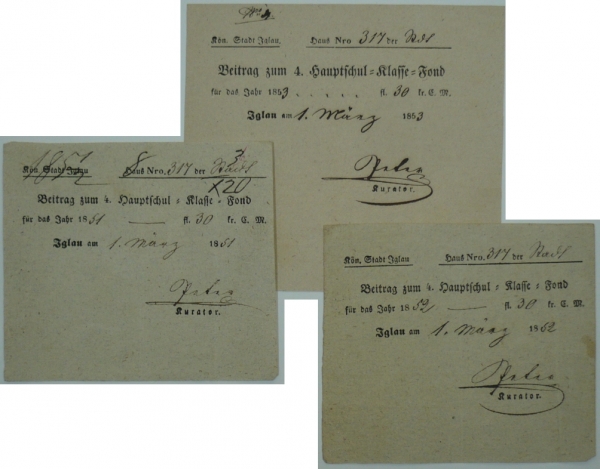 Kön. Stadt Iglau. Haus Nro. 317 der Stadt
Beitrag zum 4. Hauptschul-Klasse-Fond
für das Jahr 1853 . . . . . fl. 30 kr. C. M.
Iglau am 1. März 1853
Kurator.
1851/2
Kön. Stadt Iglau Haus Nro. 317 der Stadt
x20
Beitrag zum 4. Hauptschul-Klasse-Fond
für das Jahr 1851 — fl. 30 kr. C. M.
Iglau am 1. März 1851
Kurator.
Kön. Stadt Iglau Haus Nro. 317 der Stadt
Beitrag zum 4. Hauptschul-Klasse-Fond
für das Jahr 1852 — fl. 30 kr. C. M.
Iglau am 1. März 1852
Kurator.